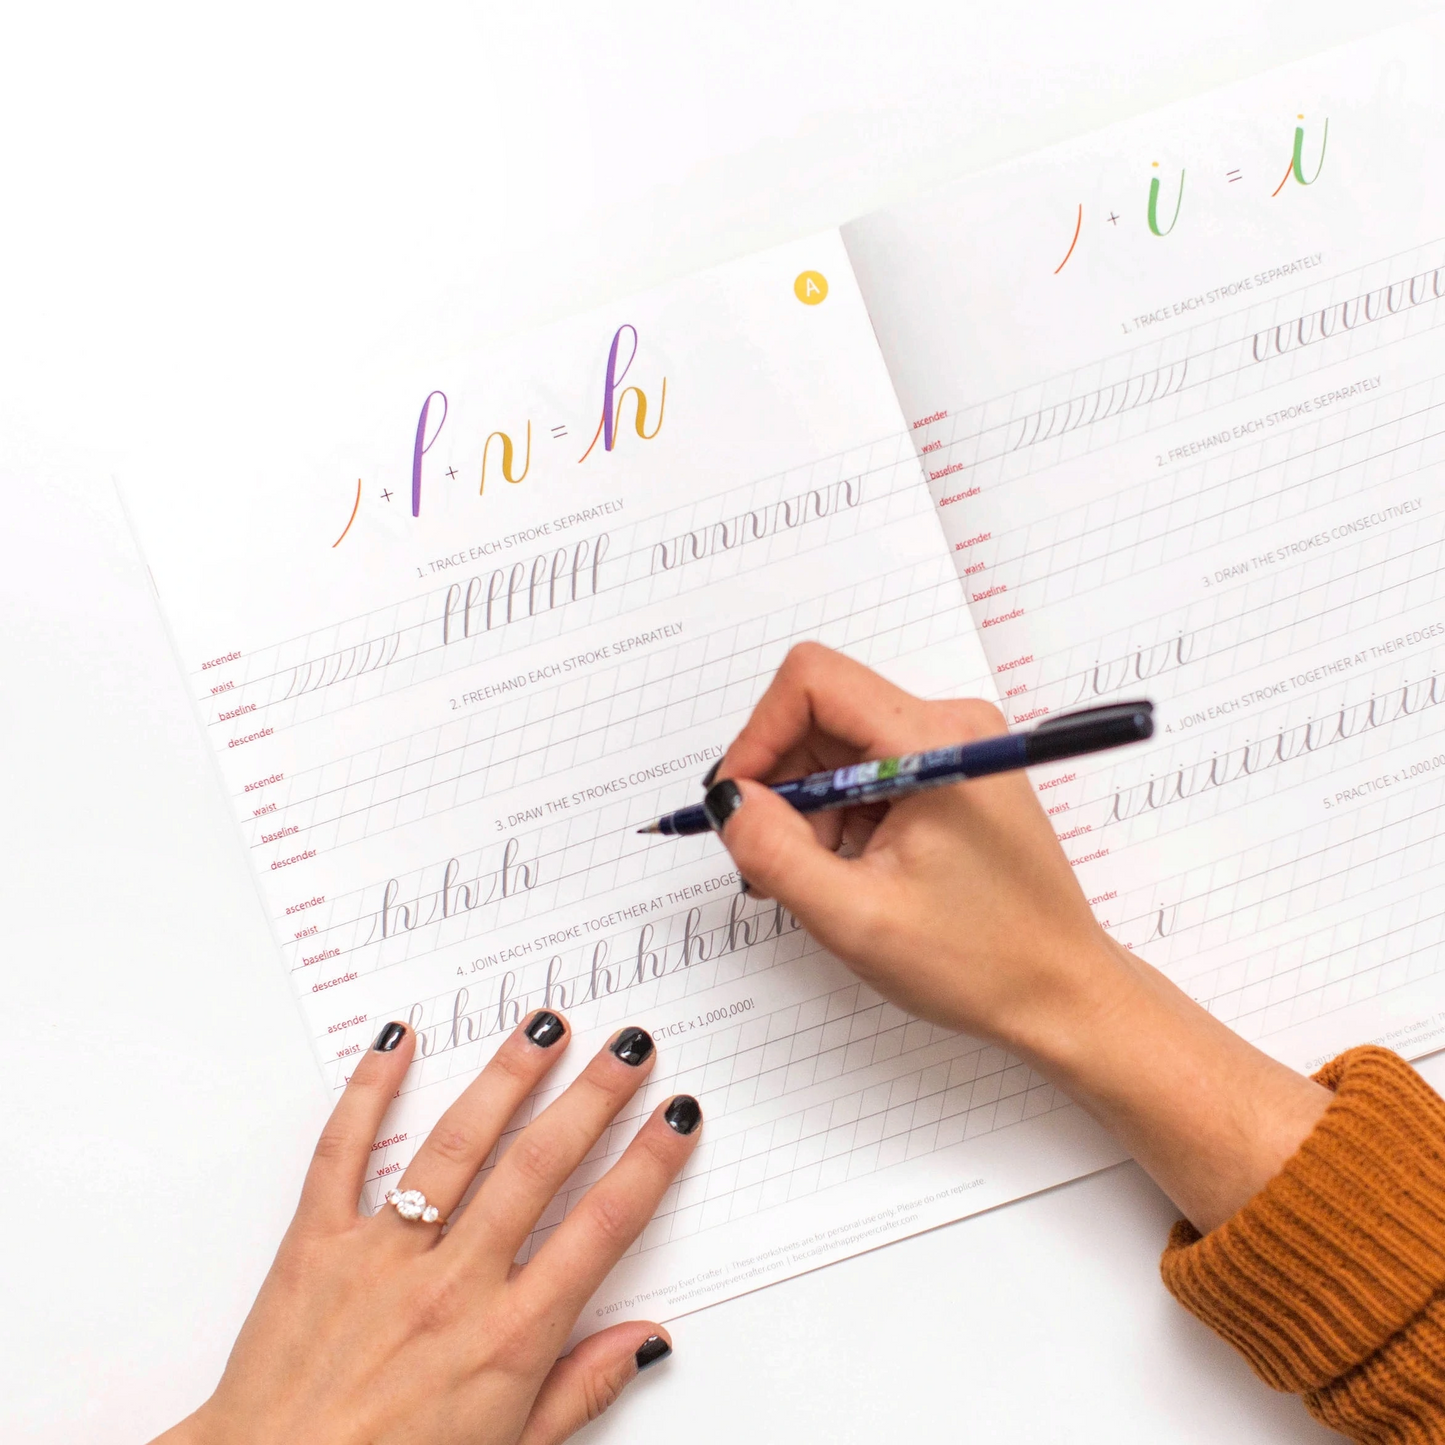 A
+ + = h
1. TRACE EACH STROKE SEPARATELY
ascender
waist
baseline
descender
2. FREEHAND EACH STROKE SEPARATELY
ascender
waist
baseline
descender
3. DRAW THE STROKES CONSECUTIVELY
ascender
waist
baseline
descender
h h h
4. JOIN EACH STROKE TOGETHER AT THEIR EDGES
ascender
waist
h h h h h h h h
CTICE x 1,000,000!
ascender
waist
© 2017 by The Happy Ever Crafter | These worksheets are for personal use only. Please do not replicate.
www.thehappyevercrafter.com | becca@thehappyevercrafter.com
+ i = i
1. TRACE EACH STROKE SEPARATELY
ascender
waist
baseline
descender
2. FREEHAND EACH STROKE SEPARATELY
ascender
waist
baseline
descender
3. DRAW THE STROKES CONSECUTIVELY
ascender
waist
baseline
i i i
4. JOIN EACH STROKE TOGETHER AT THEIR EDGES
ascender
waist
baseline
descender
i i i i i i i i i i i
5. PRACTICE x 1,000,00
ascender
i
© 2017 by The Happy Ever Crafter